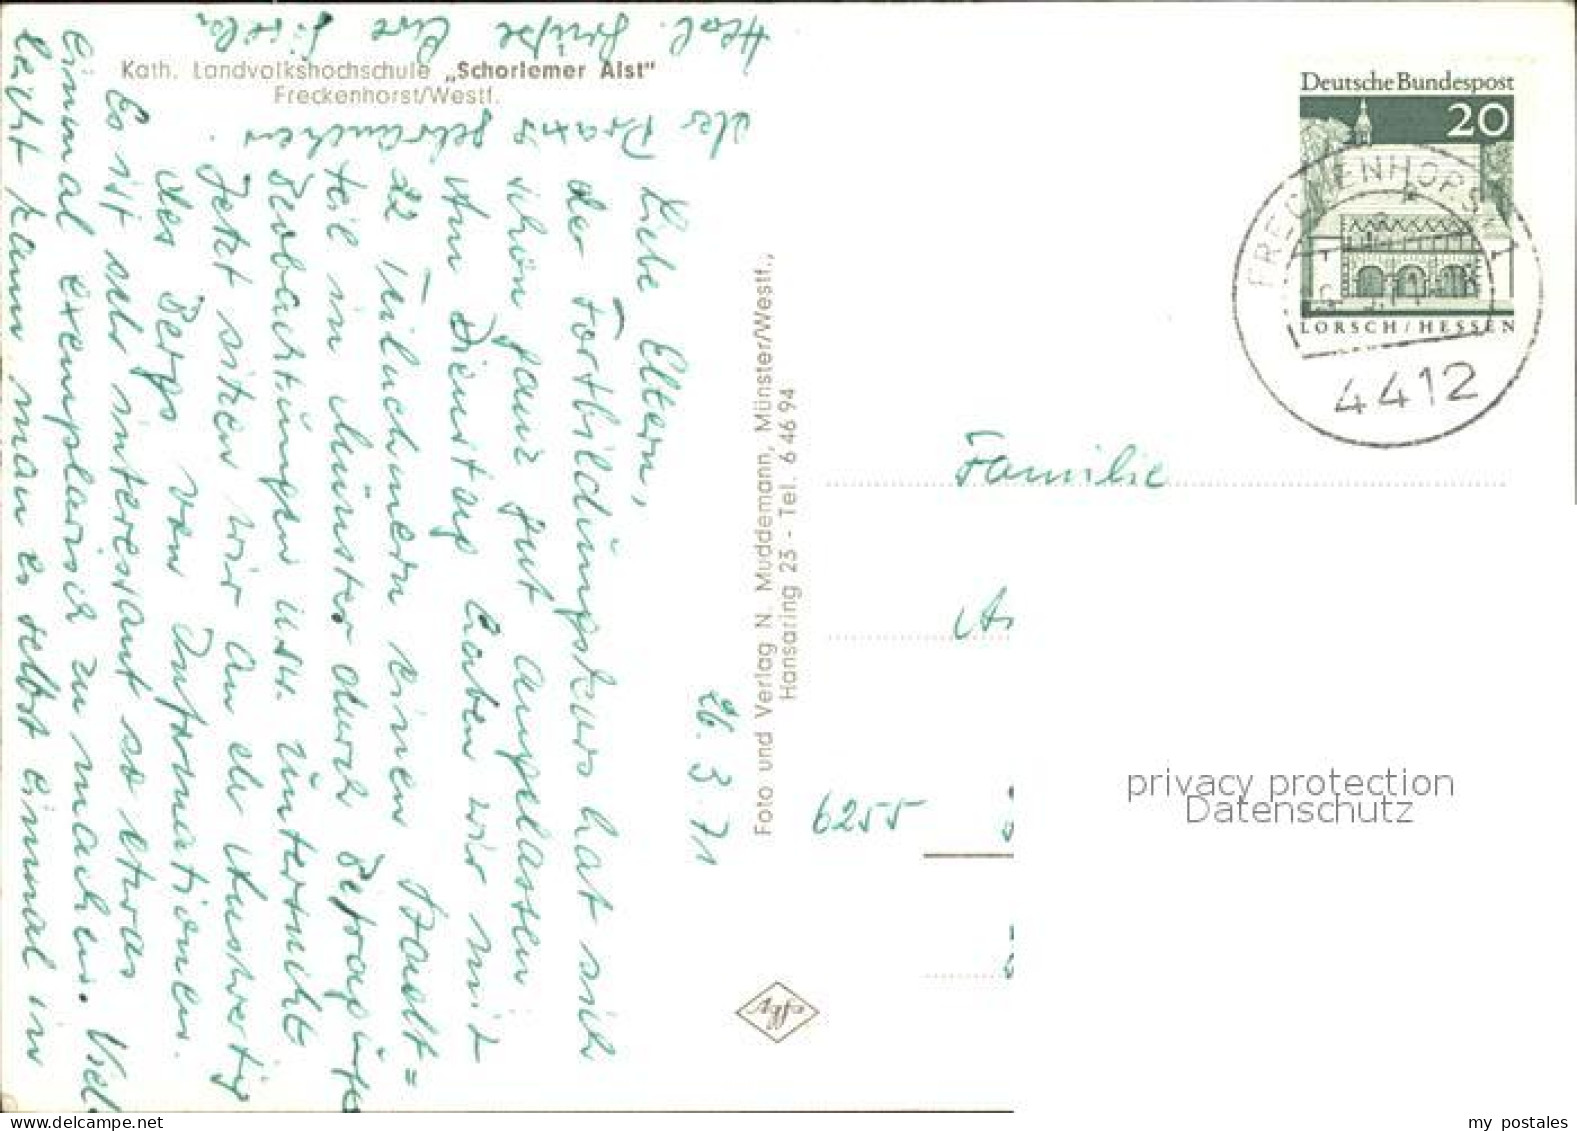 Kath. Landvolkshochschule „Schorlemer Alst"
Freckenhorst/Westf.
26. 3. 71
Liebe Eltern,
der Fortbildungskurs hat sich
schön ganz gut angelassen.
Am Dienstag haben wir mit
22 Teilnehmern einen Stadt=
teil in Münster durch Befragung
Beobachtungen usw. untersucht
Jetzt sitzen wir an der Auswertg
des Bergs von Informationen.
Es ist sehr interessant so etwas
einmal exemplarisch zu machen. Viel
leicht kann man es selbst einmal in
der Praxis gebrauchen.
Herl. Grüße Eure
Foto und Verlag N. Muddemann, Münster/Westf.,
Hansaring 23 - Tel. 6 46 94
Agfa
Deutsche Bundespost
20
LORSCH/HESSEN
FRECKENHORST 1
4412
Familie
6255
privacy protection
Datenschutz
my postales